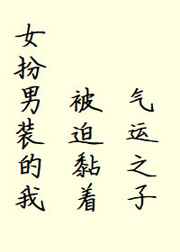 女扮男装的我
被迫黏着
气运之子